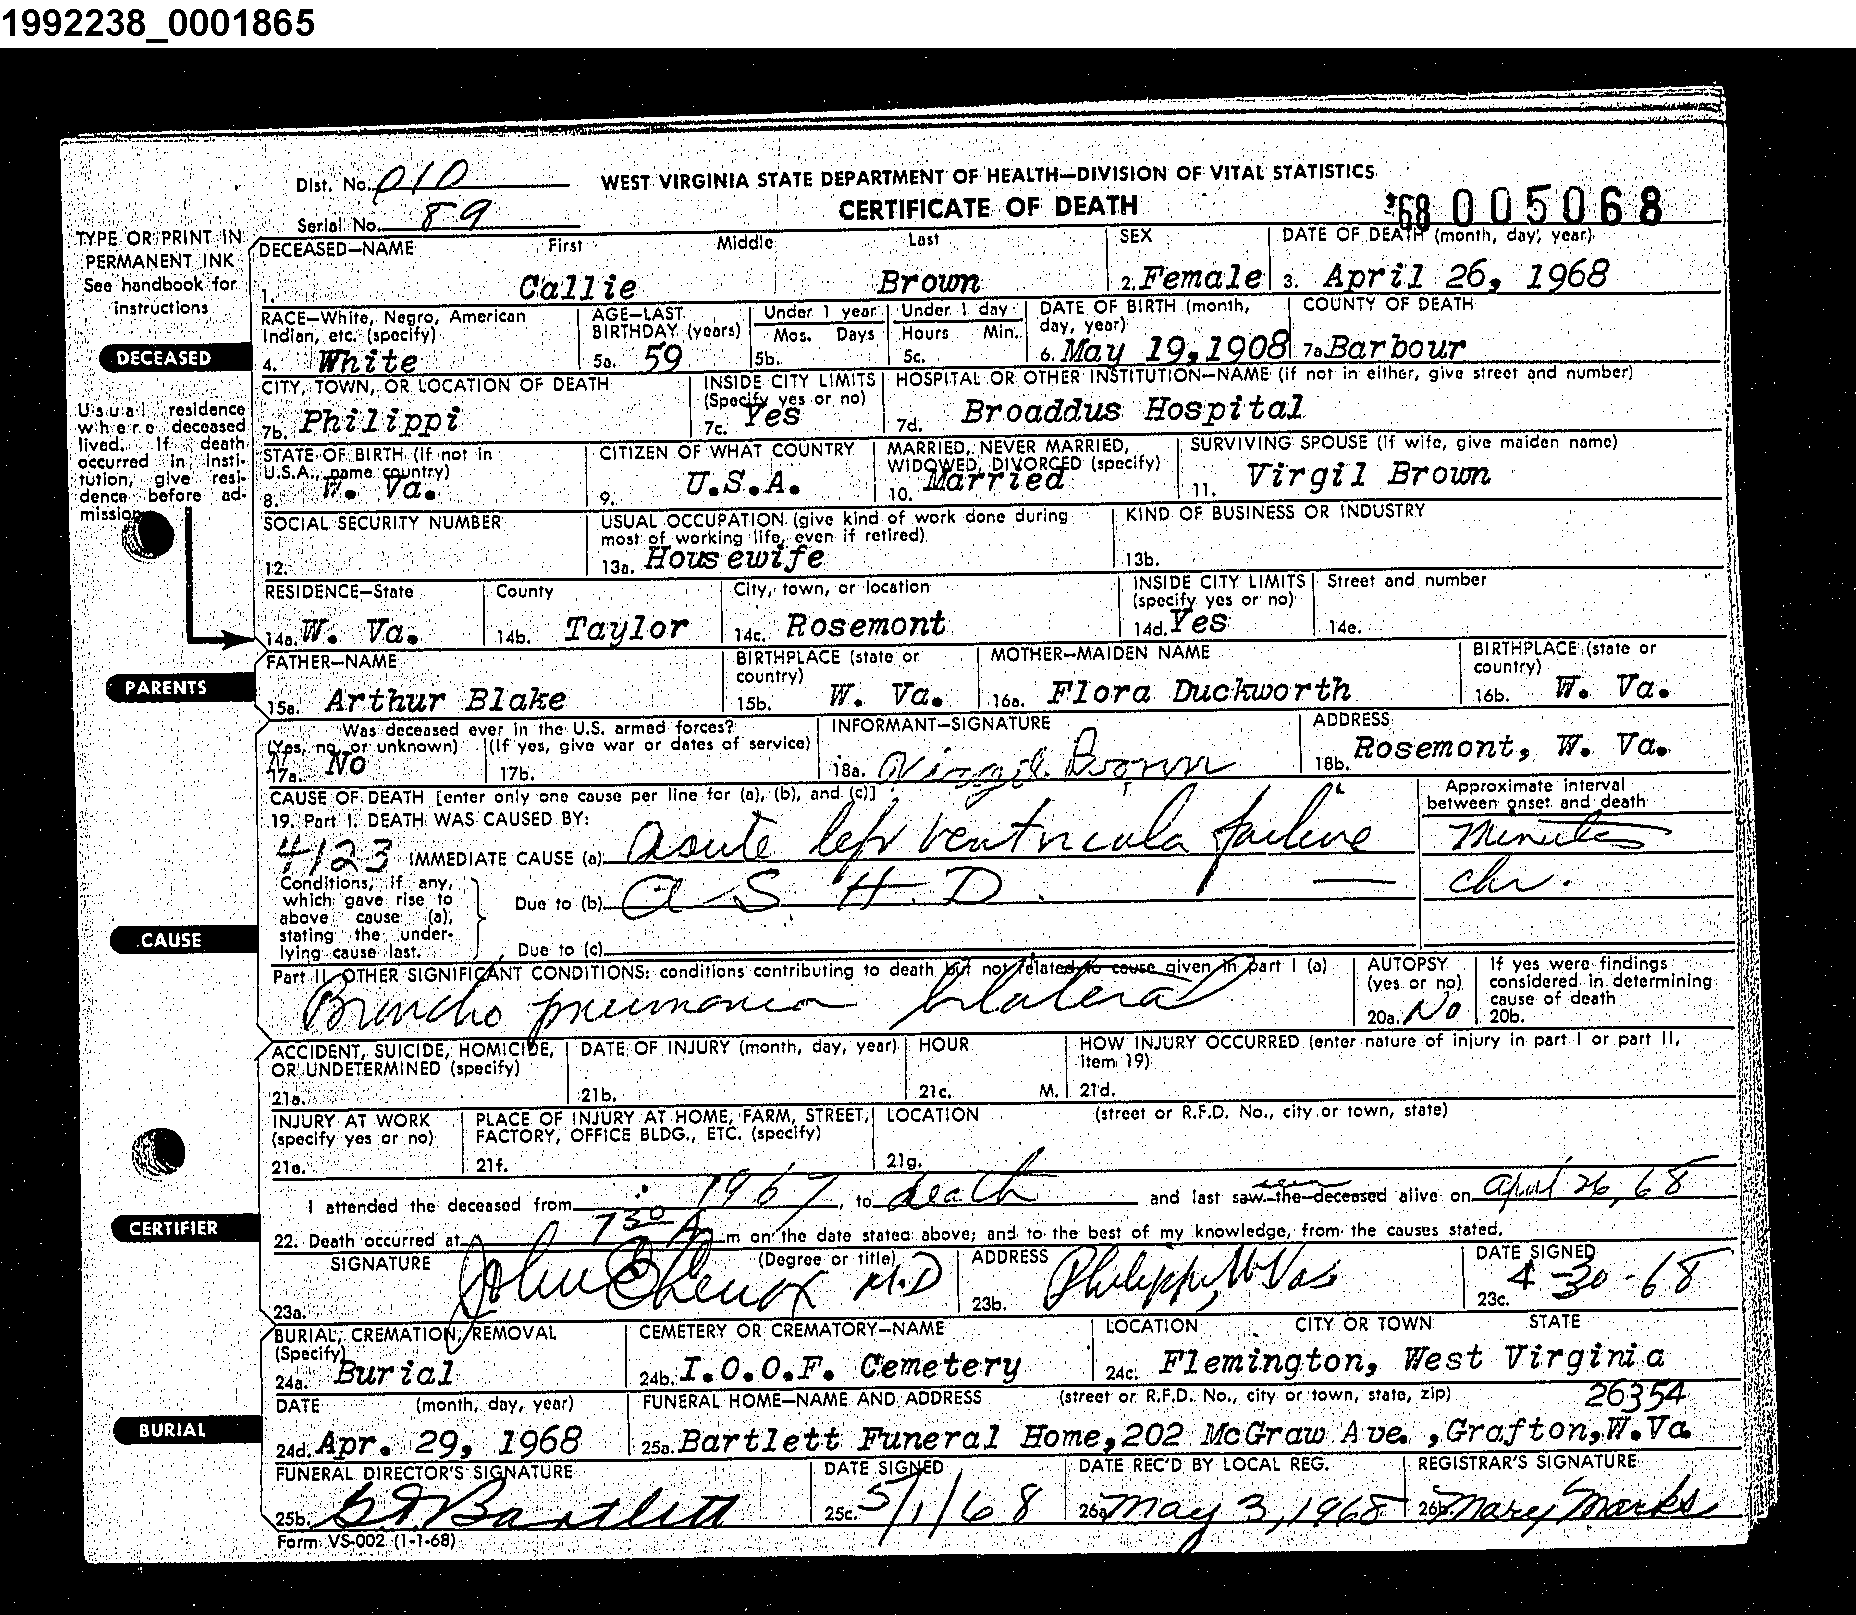 1992238_0001865
Dist. No. 010
WEST VIRGINIA STATE DEPARTMENT OF HEALTH—DIVISION OF VITAL STATISTICS
Serial No. 89
CERTIFICATE OF DEATH
'68 005068
TYPE OR PRINT IN
PERMANENT INK
See handbook for
instructions
DECEASED—NAME First Middle Last
1. Callie Brown
SEX
2. Female
DATE OF DEATH (month, day, year)
3. April 26, 1968
DECEASED
RACE—White, Negro, American
Indian, etc. (specify)
4. White
AGE—LAST
BIRTHDAY (years)
5a. 59
Under 1 year
Mos. Days
5b.
Under 1 day
Hours Min.
5c.
DATE OF BIRTH (month,
day, year)
6. May 19, 1908
COUNTY OF DEATH
7a. Barbour
CITY, TOWN, OR LOCATION OF DEATH
7b. Philippi
INSIDE CITY LIMITS
(Specify yes or no)
7c. Yes
HOSPITAL OR OTHER INSTITUTION—NAME (if not in either, give street and number)
7d. Broaddus Hospital
Usual residence
where deceased
lived. If death
occurred in insti-
tution, give resi-
dence before ad-
mission
STATE OF BIRTH (If not in
U.S.A., name country)
8. W. Va.
CITIZEN OF WHAT COUNTRY
9. U.S.A.
MARRIED, NEVER MARRIED,
WIDOWED, DIVORCED (specify)
10. Married
SURVIVING SPOUSE (If wife, give maiden name)
11. Virgil Brown
SOCIAL SECURITY NUMBER
12.
USUAL OCCUPATION (give kind of work done during
most of working life, even if retired)
13a. Housewife
KIND OF BUSINESS OR INDUSTRY
13b.
RESIDENCE—State
14a. W. Va.
County
14b. Taylor
City, town, or location
14c. Rosemont
INSIDE CITY LIMITS
(specify yes or no)
14d. Yes
Street and number
14e.
PARENTS
FATHER—NAME
15a. Arthur Blake
BIRTHPLACE (state or
country)
15b. W. Va.
MOTHER—MAIDEN NAME
16a. Flora Duckworth
BIRTHPLACE (state or
country)
16b. W. Va.
Was deceased ever in the U.S. armed forces?
(Yes, no, or unknown) (If yes, give war or dates of service)
17a. No 17b.
INFORMANT—SIGNATURE
18a. Virgil Brown
ADDRESS
18b. Rosemont, W. Va.
CAUSE
CAUSE OF DEATH [enter only one cause per line for (a), (b), and (c)]
Approximate interval
between onset and death
19. Part I. DEATH WAS CAUSED BY:
4123 IMMEDIATE CAUSE (a) acute left ventricula failure Minutes
Conditions, if any,
which gave rise to
above cause (a),
stating the under-
lying cause last.
Due to (b) A S. H. D. — chr.
Due to (c)
Part II. OTHER SIGNIFICANT CONDITIONS: conditions contributing to death but not related to cause given in part I (a)
Broncho pneumonia bilateral
AUTOPSY
(yes or no)
20a. No
If yes were findings
considered in determining
cause of death
20b.
ACCIDENT, SUICIDE, HOMICIDE,
OR UNDETERMINED (specify)
21a.
DATE OF INJURY (month, day, year)
21b.
HOUR
21c. M.
HOW INJURY OCCURRED (enter nature of injury in part I or part II,
item 19)
21d.
INJURY AT WORK
(specify yes or no)
21e.
PLACE OF INJURY AT HOME, FARM, STREET,
FACTORY, OFFICE BLDG., ETC. (specify)
21f.
LOCATION (street or R.F.D. No., city or town, state)
21g.
CERTIFIER
I attended the deceased from 1967, to death and last saw the deceased alive on April 26, 68
22. Death occurred at 7 30 A m on the date stated above; and to the best of my knowledge, from the causes stated.
SIGNATURE (Degree or title)
23a. John M.D
ADDRESS
23b. Philippi, W Va
DATE SIGNED
23c. 4-30-68
BURIAL
BURIAL, CREMATION, REMOVAL
(Specify)
24a. Burial
CEMETERY OR CREMATORY—NAME
24b. I.O.O.F. Cemetery
LOCATION CITY OR TOWN STATE
24c. Flemington, West Virginia
DATE (month, day, year)
24d. Apr. 29, 1968
FUNERAL HOME—NAME AND ADDRESS (street or R.F.D. No., city or town, state, zip) 26354
25a. Bartlett Funeral Home, 202 McGraw Ave., Grafton, W.Va.
FUNERAL DIRECTOR'S SIGNATURE
25b. Bartlett
DATE SIGNED
25c. 5/1/68
DATE REC'D BY LOCAL REG.
26a. May 3, 1968
REGISTRAR'S SIGNATURE
26b. Mary Marks
Form VS-002 (1-1-68)